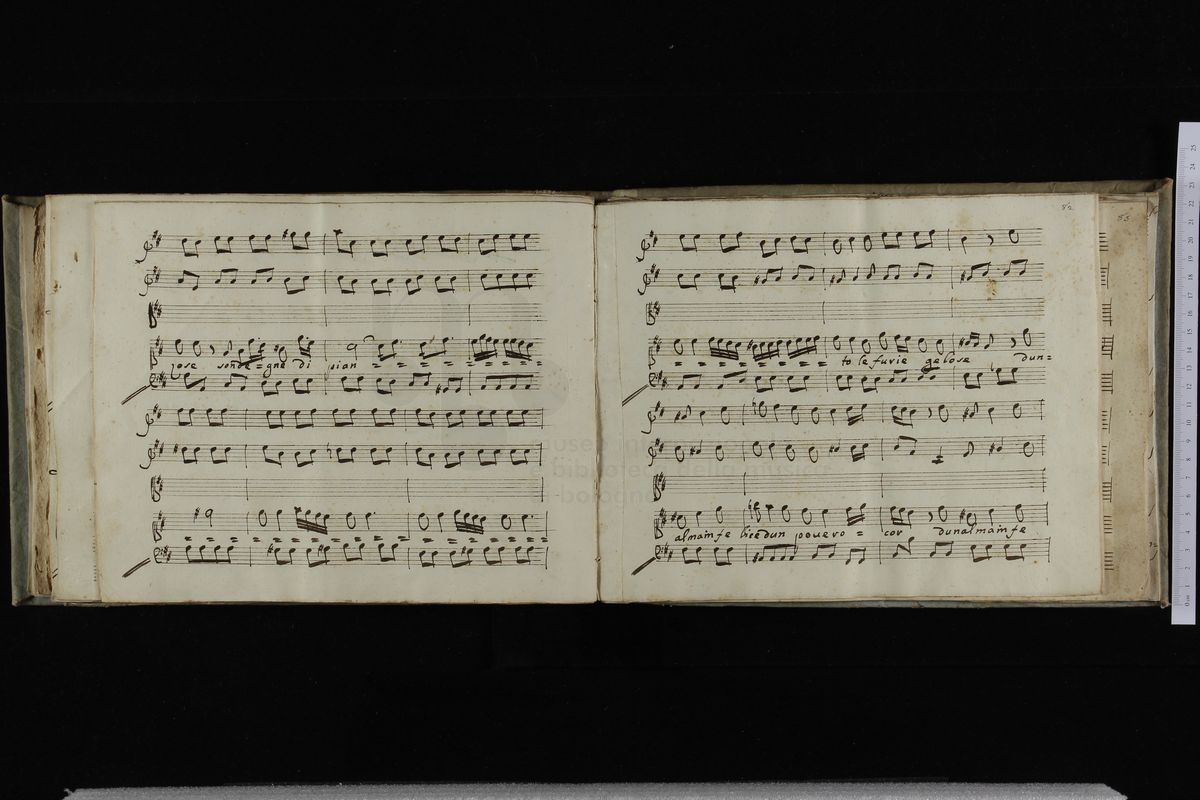 82
83
lose son de = gne di pian = = = = = = = = =
= = = = = = = = = = = = = =
= = = = = = = = to le furie gelose dun =
alma infe lice dun pouero = cor dunalmainfe
museo internazionale
e biblioteca della musica
di bologna